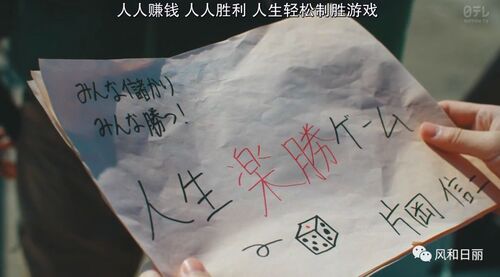 人人赚钱 人人胜利 人生轻松制胜游戏
日テレ
みんな儲かり
みんな勝つ!
人生楽勝ゲーム
片岡 信二
风和日丽